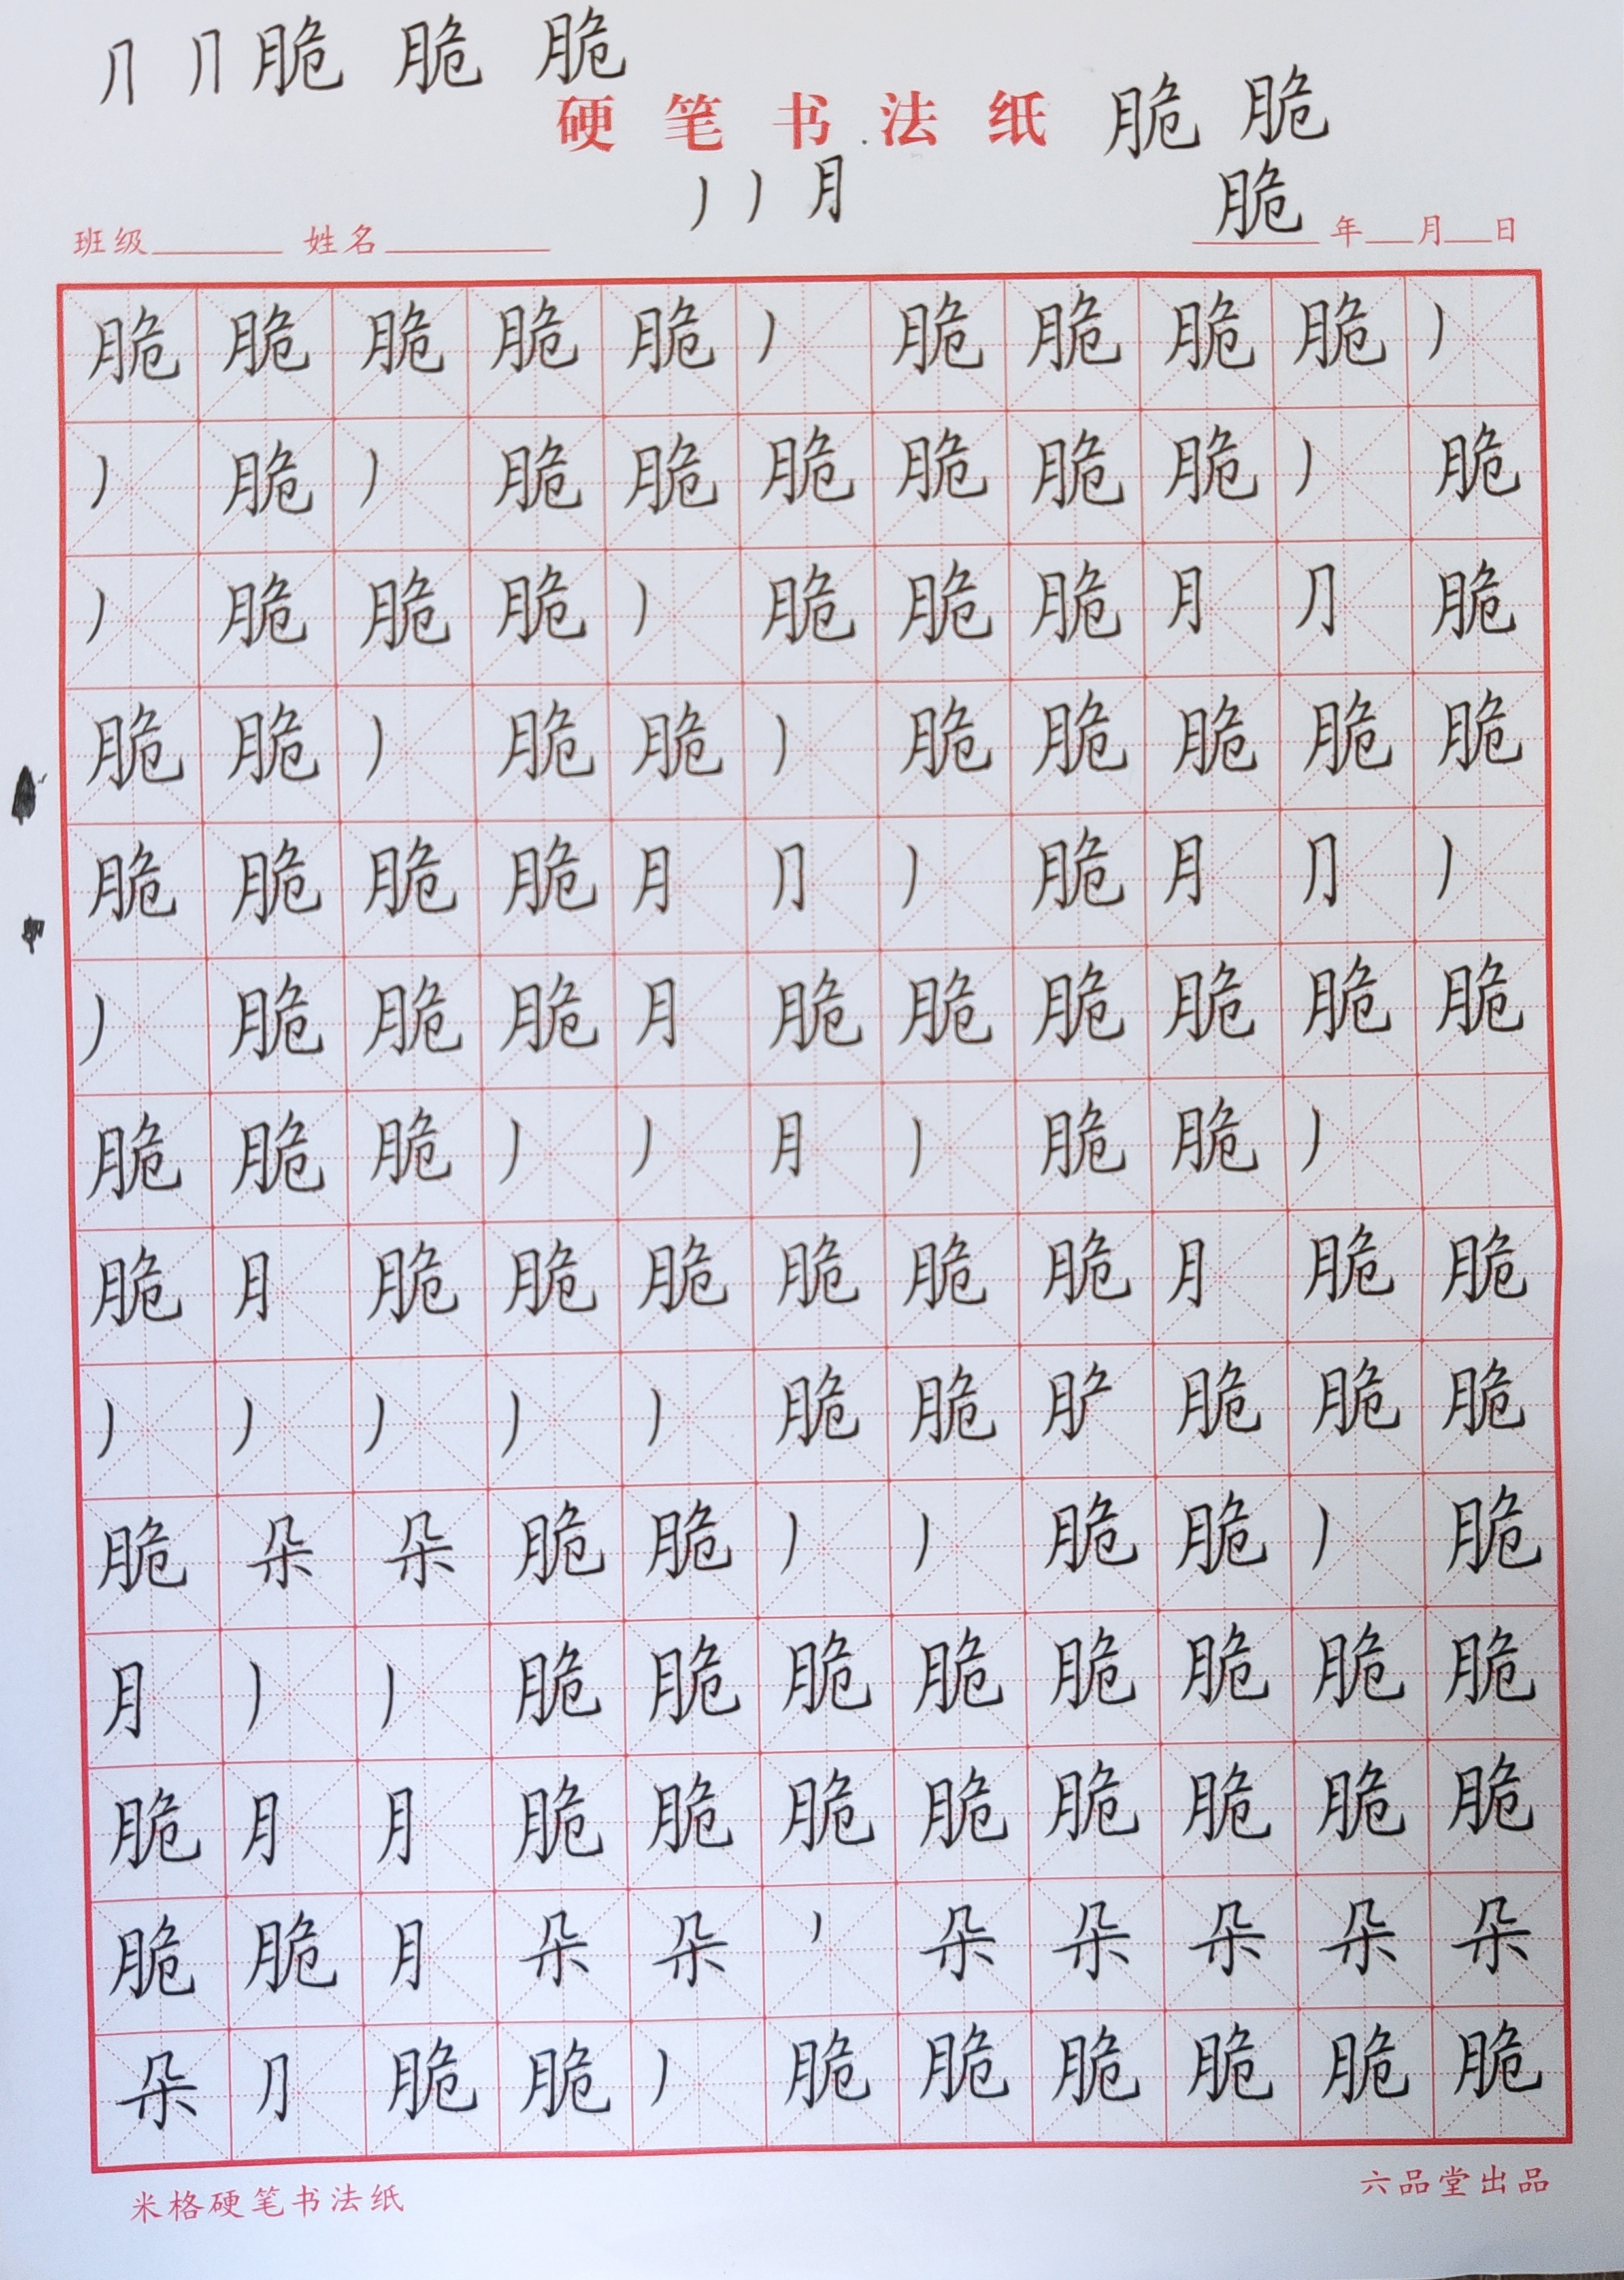 丿 丿 脆 脆 脆
硬笔书法纸 脆 脆
丿 丿 月 脆
班级 姓名 年 月 日
脆 脆 脆 脆 脆 丿 脆 脆 脆 脆 丿
丿 脆 丿 脆 脆 脆 脆 脆 脆 丿 脆
丿 脆 脆 脆 丿 脆 脆 脆 月 ⺆ 脆
脆 脆 丿 脆 脆 丿 脆 脆 脆 脆 脆
脆 脆 脆 脆 月 ⺆ 丿 脆 月 ⺆ 丿
丿 脆 脆 脆 月 脆 脆 脆 脆 脆 脆
脆 脆 脆 丿 丿 月 丿 脆 脆 丿
脆 月 脆 脆 脆 脆 脆 脆 月 脆 脆
丿 丿 丿 丿 丿 脆 脆 月 脆 脆 脆
脆 朵 朵 脆 脆 丿 丿 脆 脆 丿 脆
月 丿 丿 脆 脆 脆 脆 脆 脆 脆 脆
脆 月 月 脆 脆 脆 脆 脆 脆 脆 脆
脆 脆 月 朵 朵 丿 朵 朵 朵 朵 朵
朵 ⺆ 脆 脆 丿 脆 脆 脆 脆 脆 脆
米格硬笔书法纸 六品堂出品